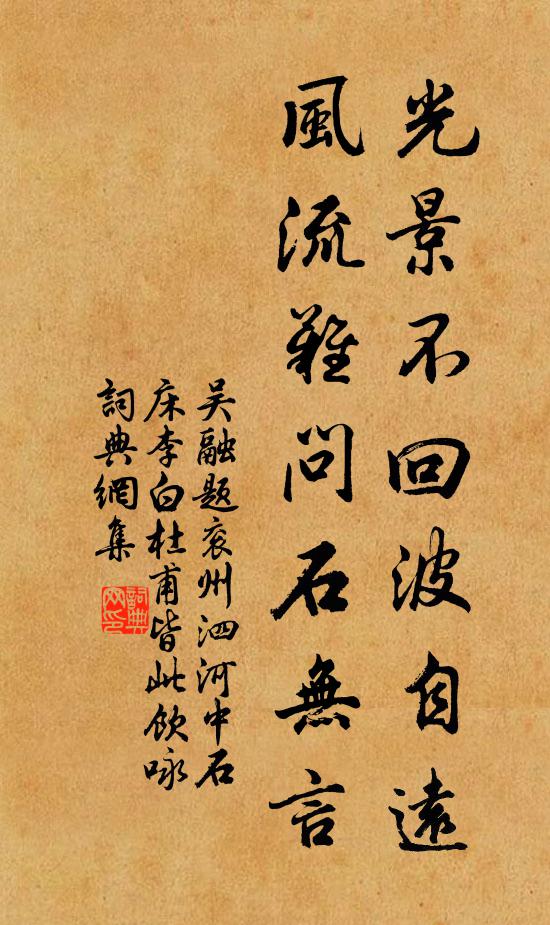 光景不回波自遠
風流難問石無言
吴融题衮州泗河中石
床李白杜甫皆此飲咏
詞典網集
詞典
网印